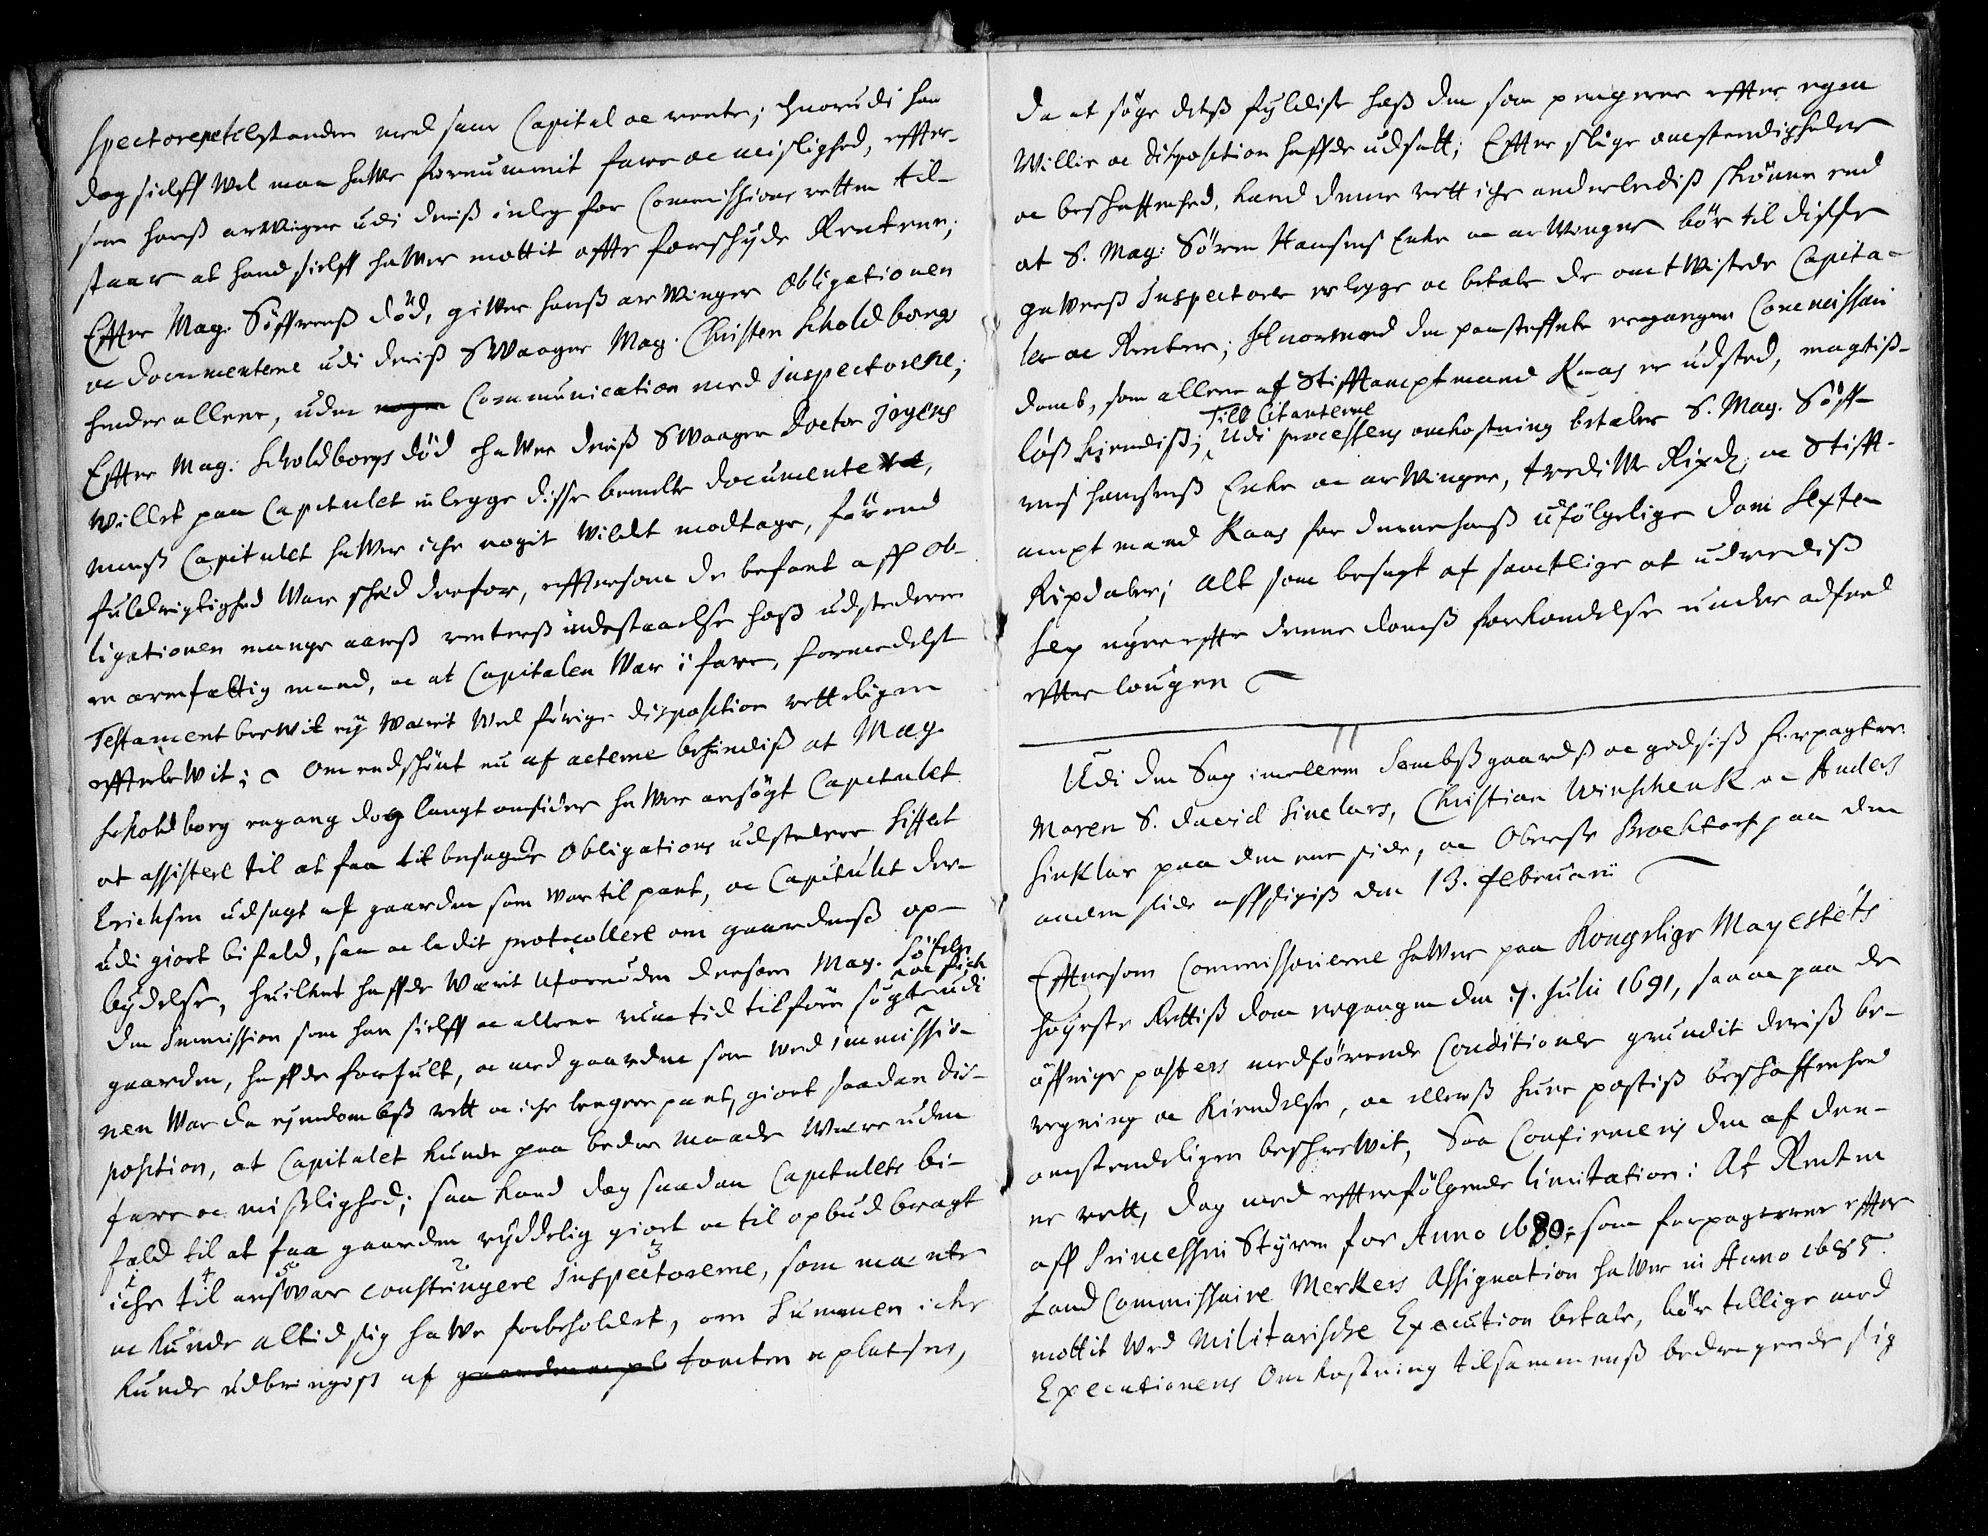 spectorerne tilstanden med samme Capital oc rente; huorudi hand
dog sielff Vel maa haffue fornummit fare oc mislighed, effter-
som hanß arvinger udi deris inleg for Commissions retten til-
staar at hand sielff hafver mottit offte forskyde Renterne;
Effter Mag. Söffrenß död, gifver hanß arvinger Obligationen
oc documenterne udi deriß Svoger Mag. Christen Scholdborgs
hender allene, uden Communication med Inspectorerne;
Effter Mag. Scholdborgs död hafver deriß Svoger Doctor Jojens
Villet paa Capitulet inlegge disse bemelte documenter,
menß Capitulet hafver iche nogit Vildt modtage, förend
fuldrigtighed Vaar skeed derfor, efftersom de befant aff Ob-
ligationen mange aarß renterß indestaaelse hoß udstederen
en armfattig mand, oc at Capitalen Var i fare, formedelst
Testament brevit ej Varit Ved förige disposition retteligen
effterlevit; Omendskiönt nu af acterne befindiß at Mag.
Scholdborg engang dog langt omsider hafver ansögt Capitulet
at assistere til at faa bit besagde Obligations udstedere Siffert
Erichsen udsagt af gaarden som Var til pant, oc Capitulet der-
udi giort bifald, saa oc ladit protocollere om gaardenß op-
bydelse, huilket haffde Varit ufornöden dersom Mag. Söfren
den Immission som han sielff oc allene nun tid tilforn sögte oc fick udi
gaarden, haffde forfult, oc med gaarden som Ved immissio-
nen Var da ejendombß rett oc iche lengere pant, giort saadan dis-
position, at Capitalet kunde paa bedre maade Være uden
fare oc mislighed; saa kand dog saadan Capitulets bi-
fald til at faa gaarden ryddelig giort oc til opbud bragt
iche til ansvar constringere Inspectorerne, som maatte
oc kunde altid sig hafve forbeholdet, om Summen iche
kunde udbringis af tomten oc platsen,
da at söge dets fyldist hoß den som pengene effter egen
Villie oc disposition haffde udsatt; Effter slige omstendigheder
oc beskaffenhed, kand denne rett iche anderlediß skiönne end
at S. Mag: Sören Hansens Enke oc arvinger bör til disse
gaverß Inspectorer erlegge oc betale de omtvistede Capita-
ler oc Renter; Huorimod den paasteffnte ergangen Commissari
domb, som allene af Stifftamptmand Kaas er udsted, magtiß-
löß kiendiß; Till Citanterne Udi processens omkostning betaler S. Mag. Söff-
rens Hansenß Enke oc arvinger, tredive Rixdl, oc Stifft-
amptmand Kaas for denne hanß ufölgelige dom Sexten
Rixdaler; Alt som besagt af samtlige at udrediß
Sex uger effter denne domß forkyndelse under adferd
effter lougen
Udi den Sag imellem Dombßgaardß oc godsiß forpagter
Maren S. David Sinclars, Christian Winschenk oc Anders
Sinklar paa den ene side, oc Oberste Brocktorf paa den
anden side affsigiß den 13. februarii
Effttersom Commissarierne hafver paa Kongelige Mayestets
höyeste Rettiß dom ergangen den 7. Julii 1691, saa oc paa de
öffrige posters medförende Conditioner grundit deriß be-
regning oc kiendelse, oc ellerß huer postiß beskaffenhed
omstendeligen beskrevit, Saa Confirmeris den af den-
ne rett, dog med effterfölgende limitation: Af Renten
aff Princessin Styren for Anno 1680, som forpagteren effter
Land Commissaire Merkers Assignation hafver in Anno 1685
mottit Ved Militarische Execution betale, bör tillige med
Executionens Omkostning tilsammenß bedragende sig